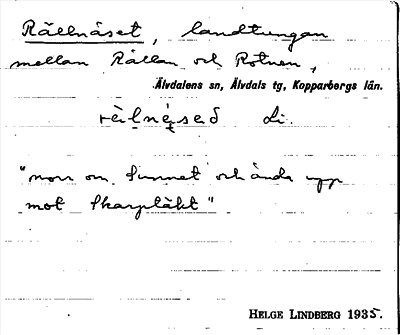 Rällnäset, landtungan
mellan Rällan och Rotnen,
Älvdalens sn, Älvdals tg, Kopparbergs län.
Li.
"norr om Sunnet och ända upp
mot Skarptäkt"
HELGE LINDBERG 1935.